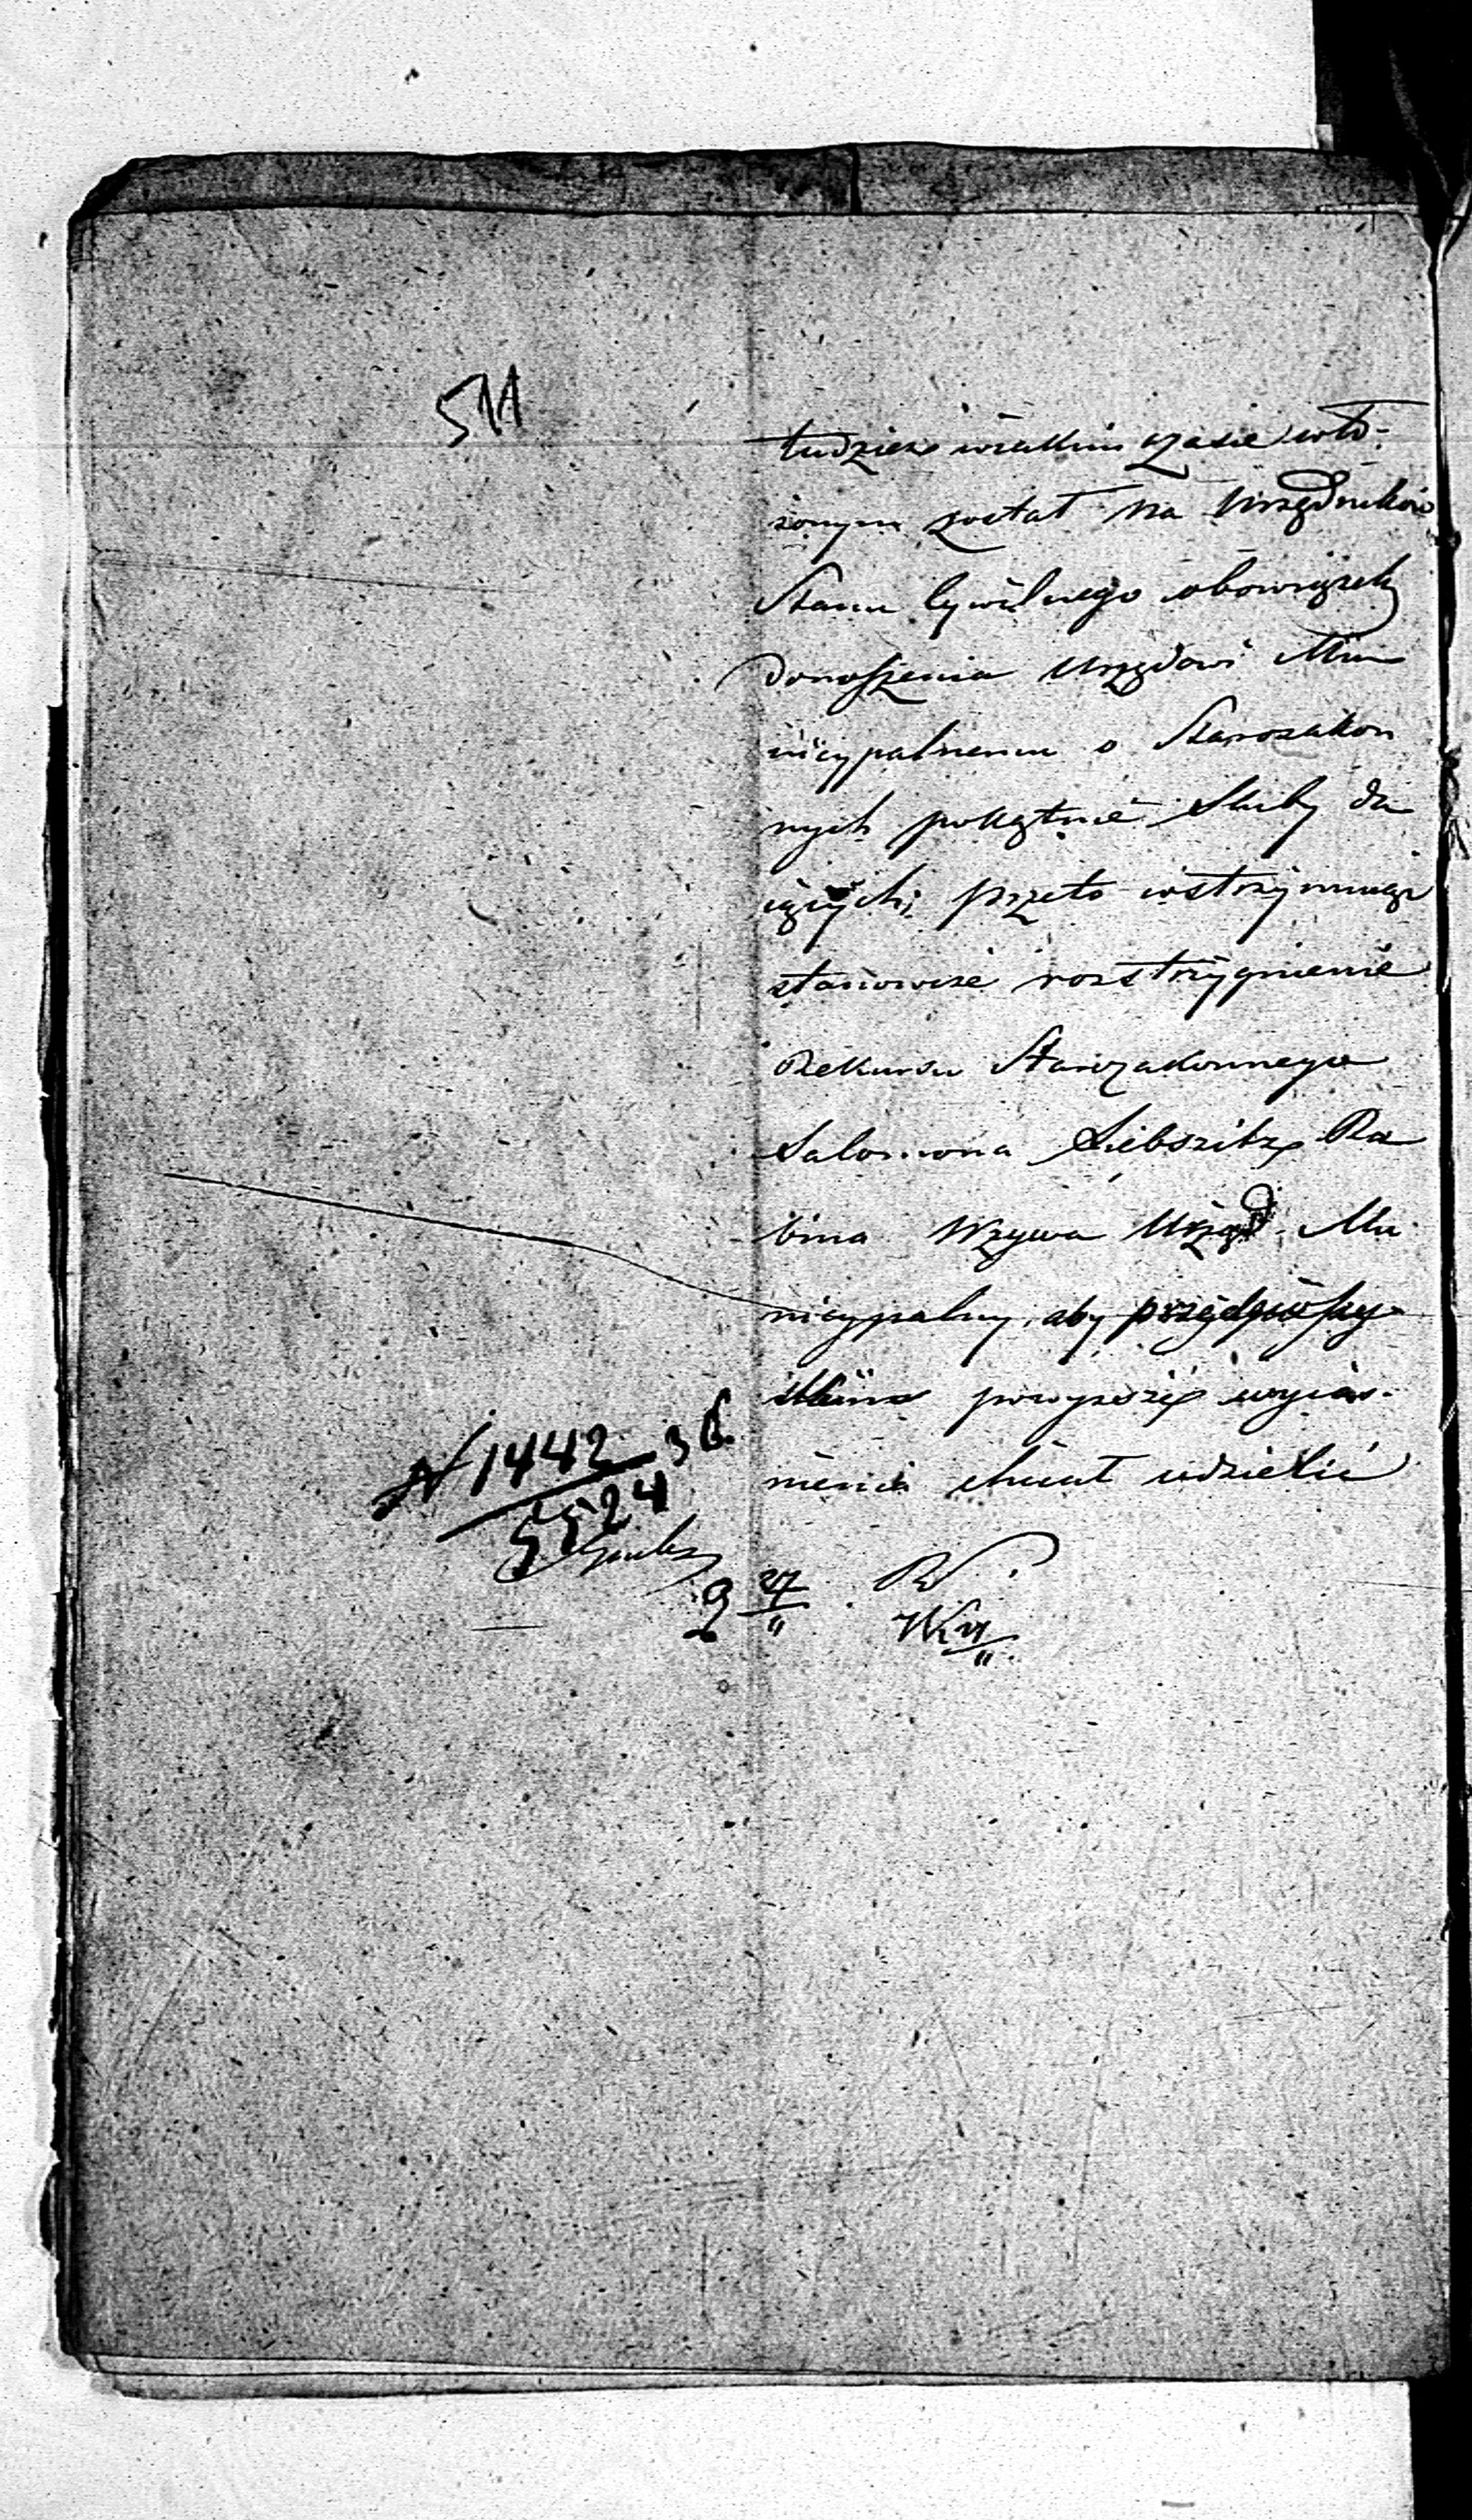 511
tudzież w iakim czasie wło-
żonym został na Urzędników
Stanu Cywilnego obowiązek
donoszenia Urzędowi Mu
nicypalnemu o Starozakon
nych pokątnie Śluby da
iących; przeto wstrzymuiąc
stanowcze rozstrzygnienie
Rekursu Starozakonnego
Salomona Liebszitz Ra
bina Wzywa Urząd Mu
nicypalny, aby
powyższe wyiaś-
nienia chciał udzielić
N 1442
5524